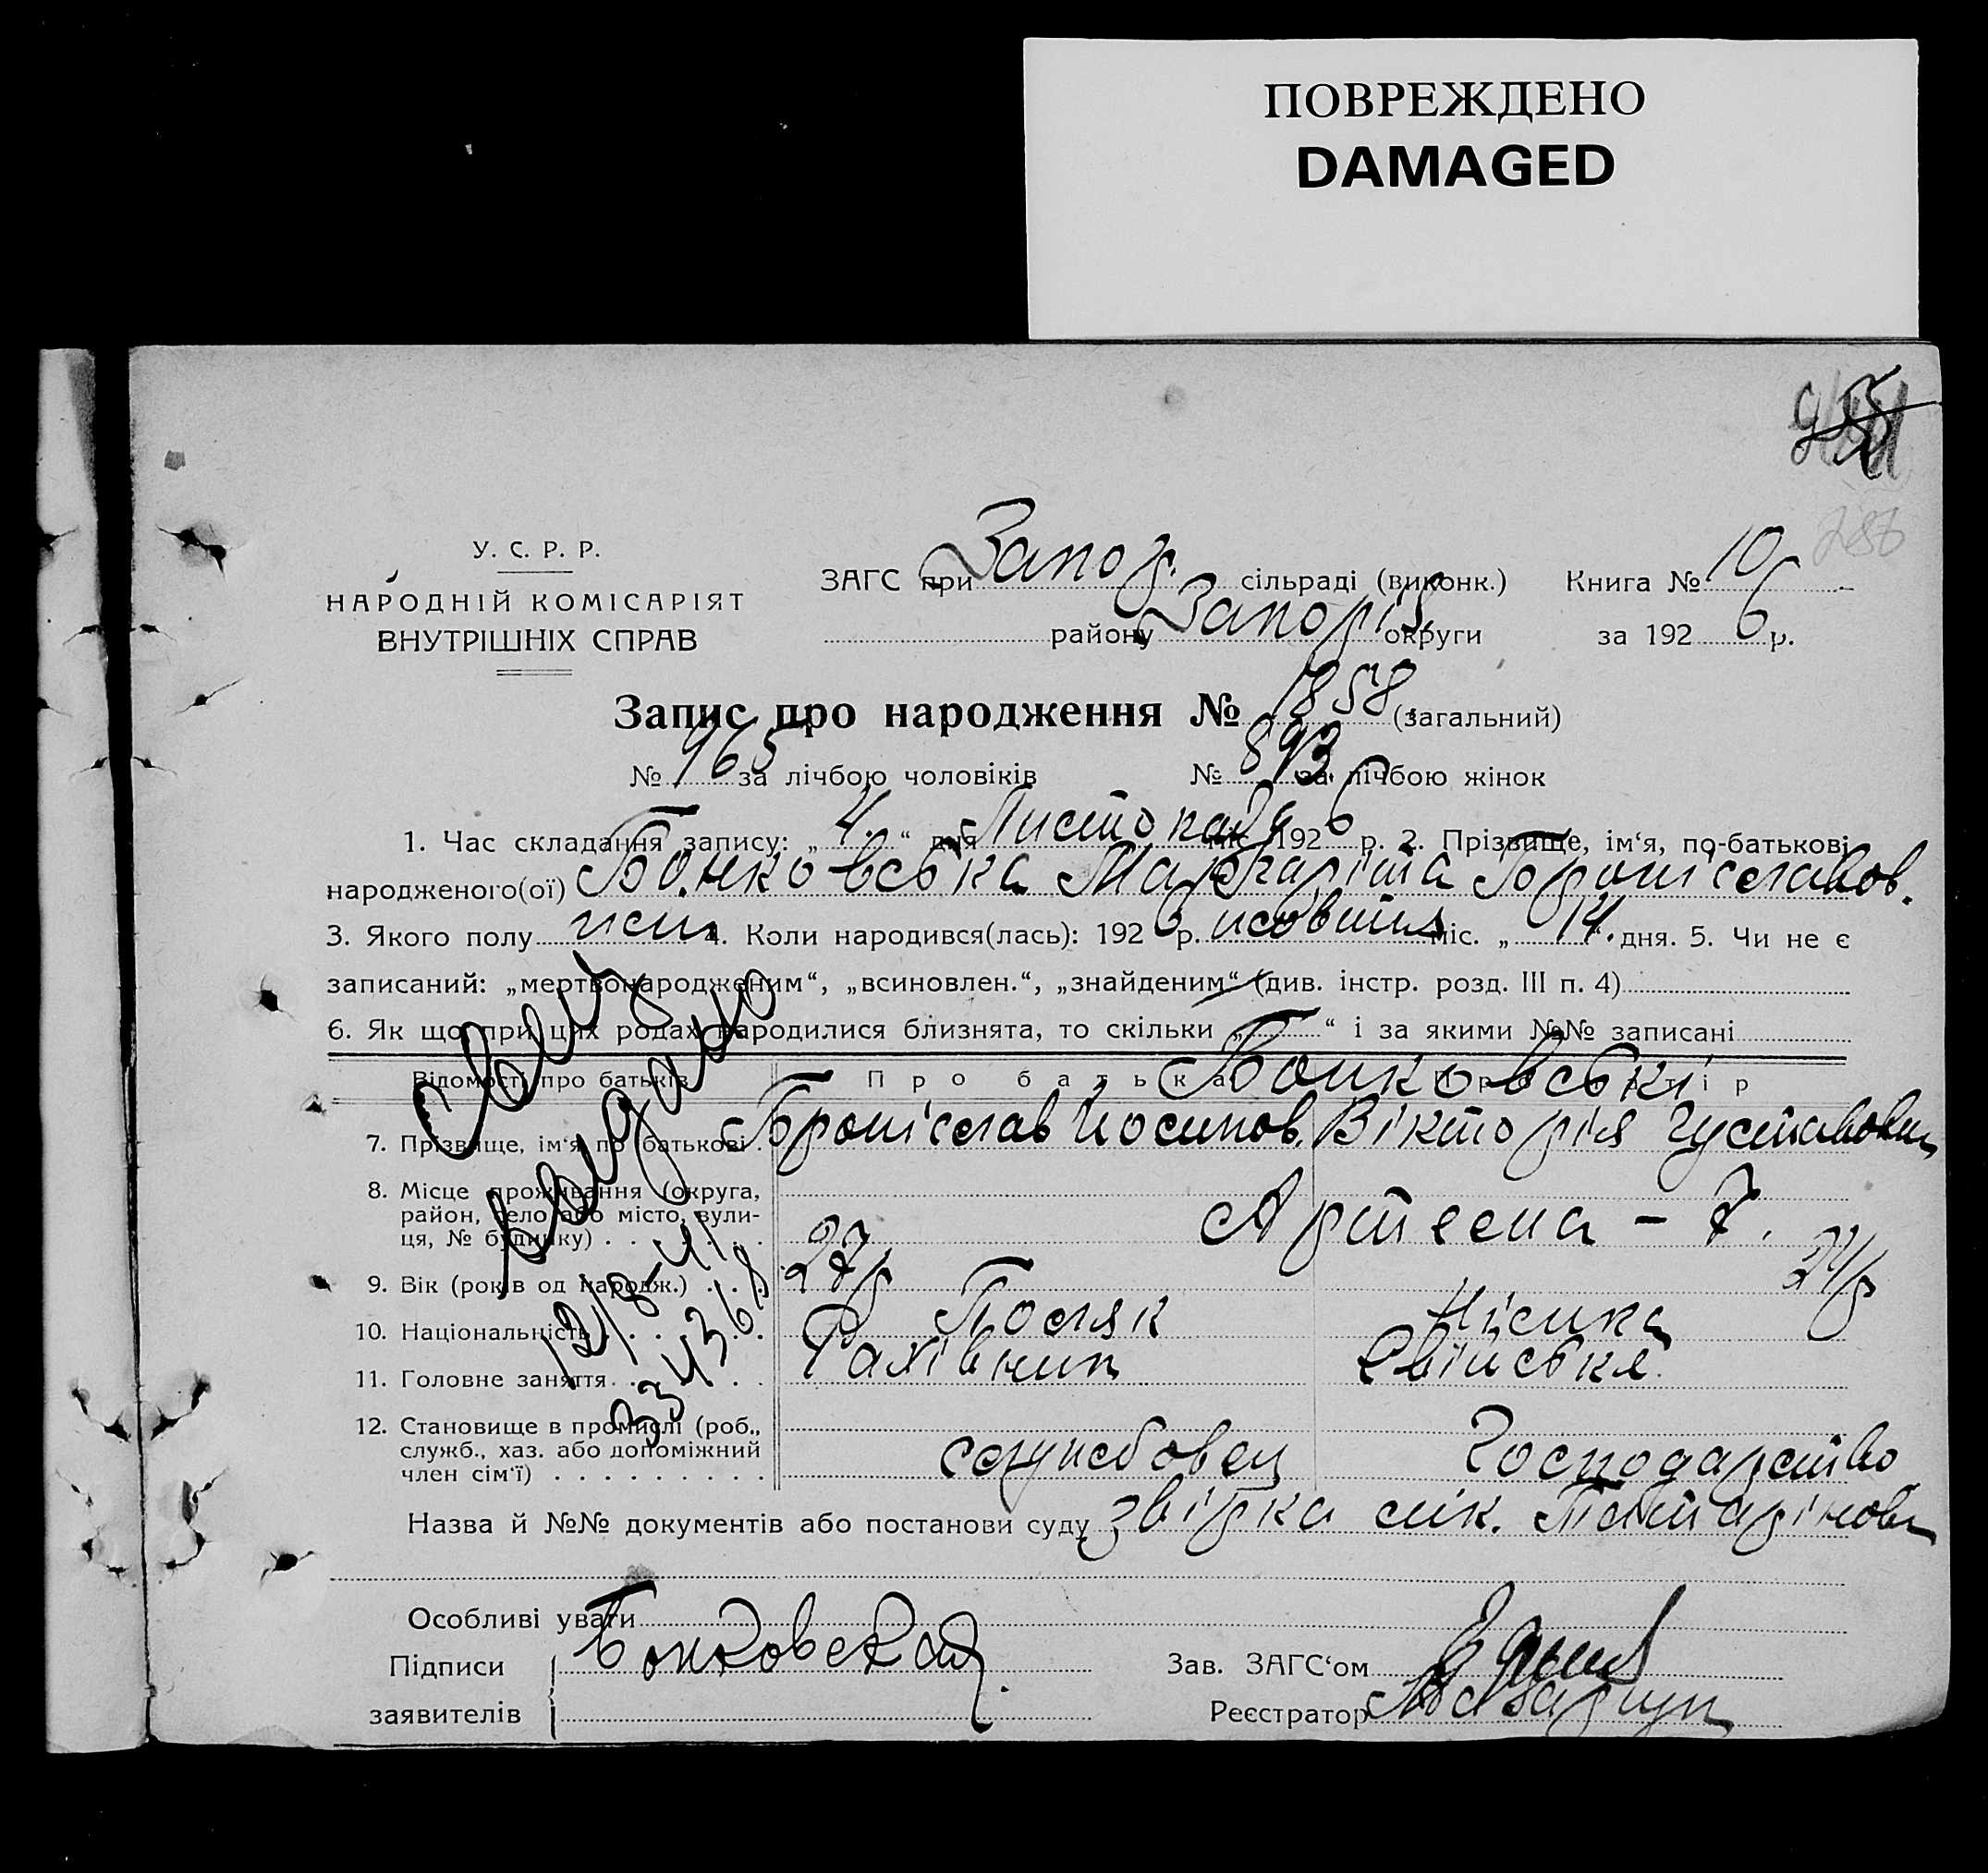 ПОВРЕЖДЕНО
DAMAGED
У. С. Р. Р.
НАРОДНІЙ КОМІСАРІЯТ
ВНУТРІШНІХ СПРАВ
ЗАГС при Запор. сільраді (виконк.) Книга № 10
району Запоріз. округи за 1926 р.
Запис про народження № 1858 (загальний)
№ 965 за лічбою чоловіків № 893 за лічбою жінок
1. Час складання запису: „4.“ дня Листопада міс. 1926 р. 2. Прізвище, ім‘я, по-батькові
народженого(ої) Бонковська Маргаріта Броніславов.
3. Якого полу жін. 4. Коли народився(лась): 1926 р. жовтня міс. „14.“ дня. 5. Чи не є
записаний: „мертвонародженим“, „всиновлен.“, „знайденим“ (див. інстр. розд. III п. 4)
6. Як що при цих родах народилися близнята, то скільки „ “ і за якими №№ записані
Відомості про батьків Про батька Про матір
Бонковські
7. Прізвище, ім‘я по батькові Броніслав Йосипов. Вікторія Густавовн
8. Місце проживання (округа,
район, село або місто, вули-
ця, № будинку) Артема - 7.
9. Вік (років од народж.) 27р 24р
10. Національність Поляк Німка
11. Головне заняття Рахівник Свійське
12. Становище в промислі (роб.,
служб., хаз. або допоміжний
член сім‘ї) службовец Господарство
Назва й №№ документів або постанови суду звірка лік.
Особливі уваги
Підписи Бонковская.
заявителів
Зав. ЗАГС‘ом
Реєстратор
Свид
выдано
12/8-41
334368